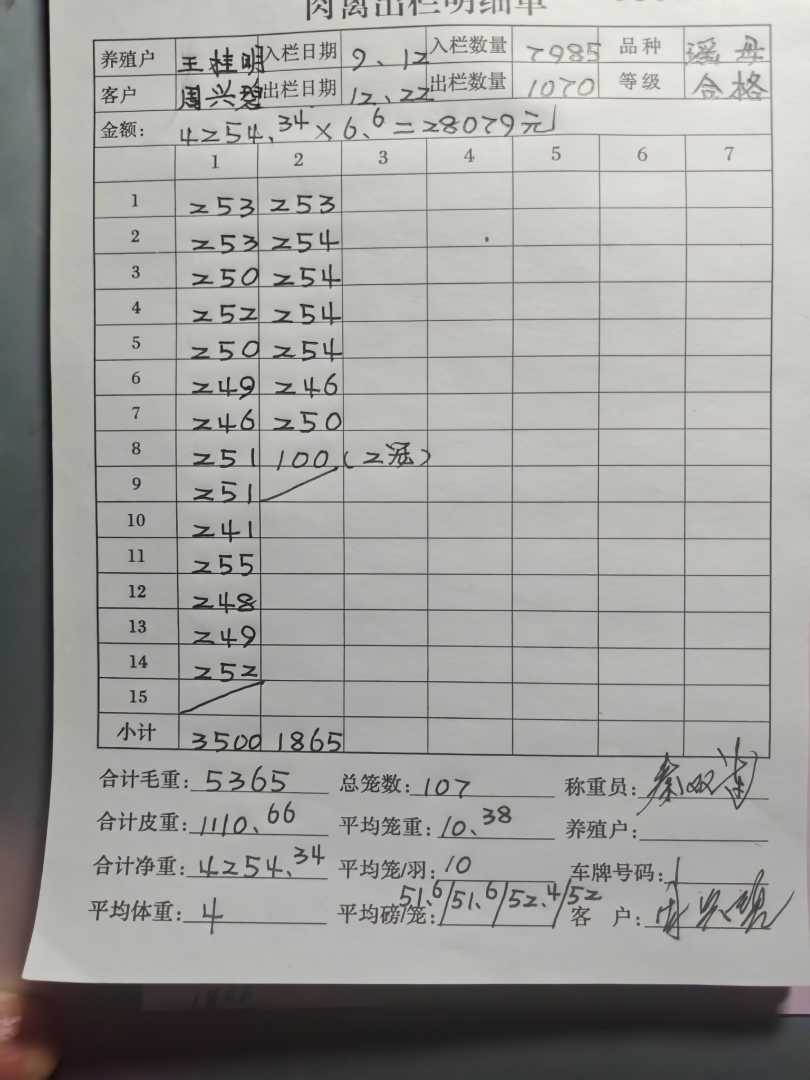 肉禽出栏明细单
养殖户 王桂明 入栏日期 9、12 入栏数量 7985 品种 瑶母
客户 周兴碧 出栏日期 12、22 出栏数量 1070 等级 合格
金额: 4254.34×6.6=28079元
1 2 3 4 5 6 7
1 253 253
2 253 254
3 250 254
4 252 254
5 250 254
6 249 246
7 246 250
8 251 100(2冠)
9 251
10 241
11 255
12 248
13 249
14 252
15
小计 3500 1865
合计毛重: 5365 总笼数: 107 称重员:
合计皮重: 1110.66 平均笼重: 10.38 养殖户:
合计净重: 4254.34 平均笼/羽: 10 车牌号码:
平均体重: 4 平均磅/笼: 51.6/51.6/52.4/52 客 户: